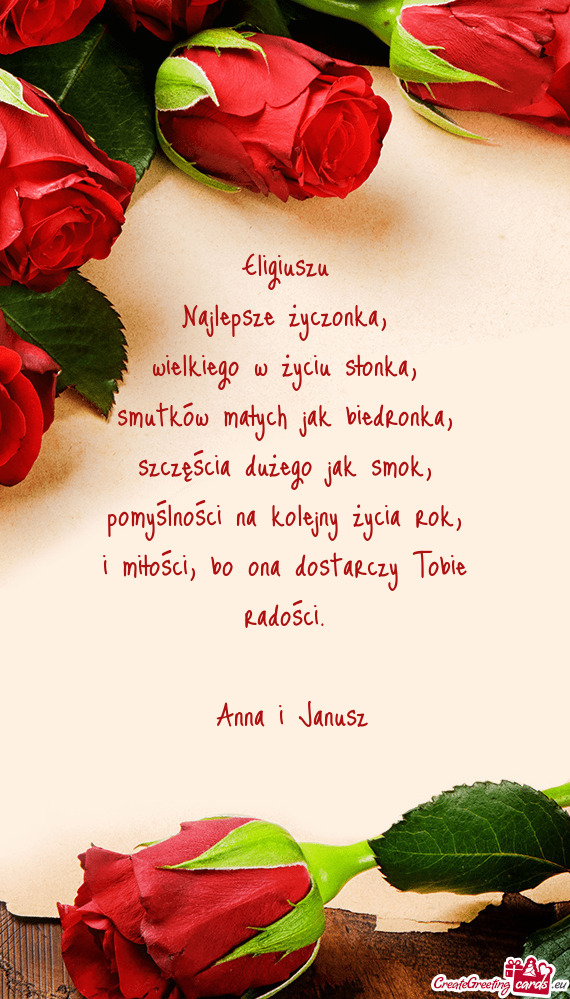 Eligiuszu
Najlepsze życzonka,
wielkiego w życiu słonka,
smutków małych jak biedronka,
szczęścia dużego jak smok,
pomyślności na kolejny życia rok,
i miłości, bo ona dostarczy Tobie
radości.
Anna i Janusz
CreateGreeting cards .eu